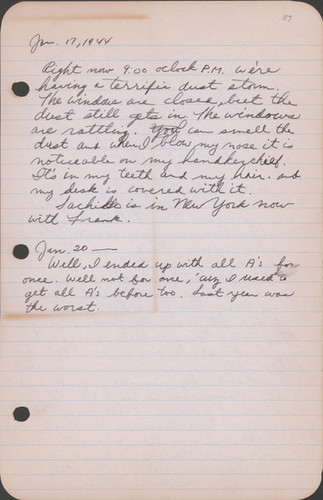 117
Jan. 17, 1944
Right now 9:00 oclock P.M. we're
having a terrific dust storm.
The windows are closed, but the
dust still gets in. The windows
are rattling. You can smell the
dust and when I blow my nose it is
noticeable on my handkerchief.
It's in my teeth and my hair. and
my desk is covered with it.
Sachiko is in New York now
with Frank.
Jan. 20 —
Well, I ended up with all A's for
once. Well not for once, 'cuz I used to
get all A's before too. Last year was
the worst.